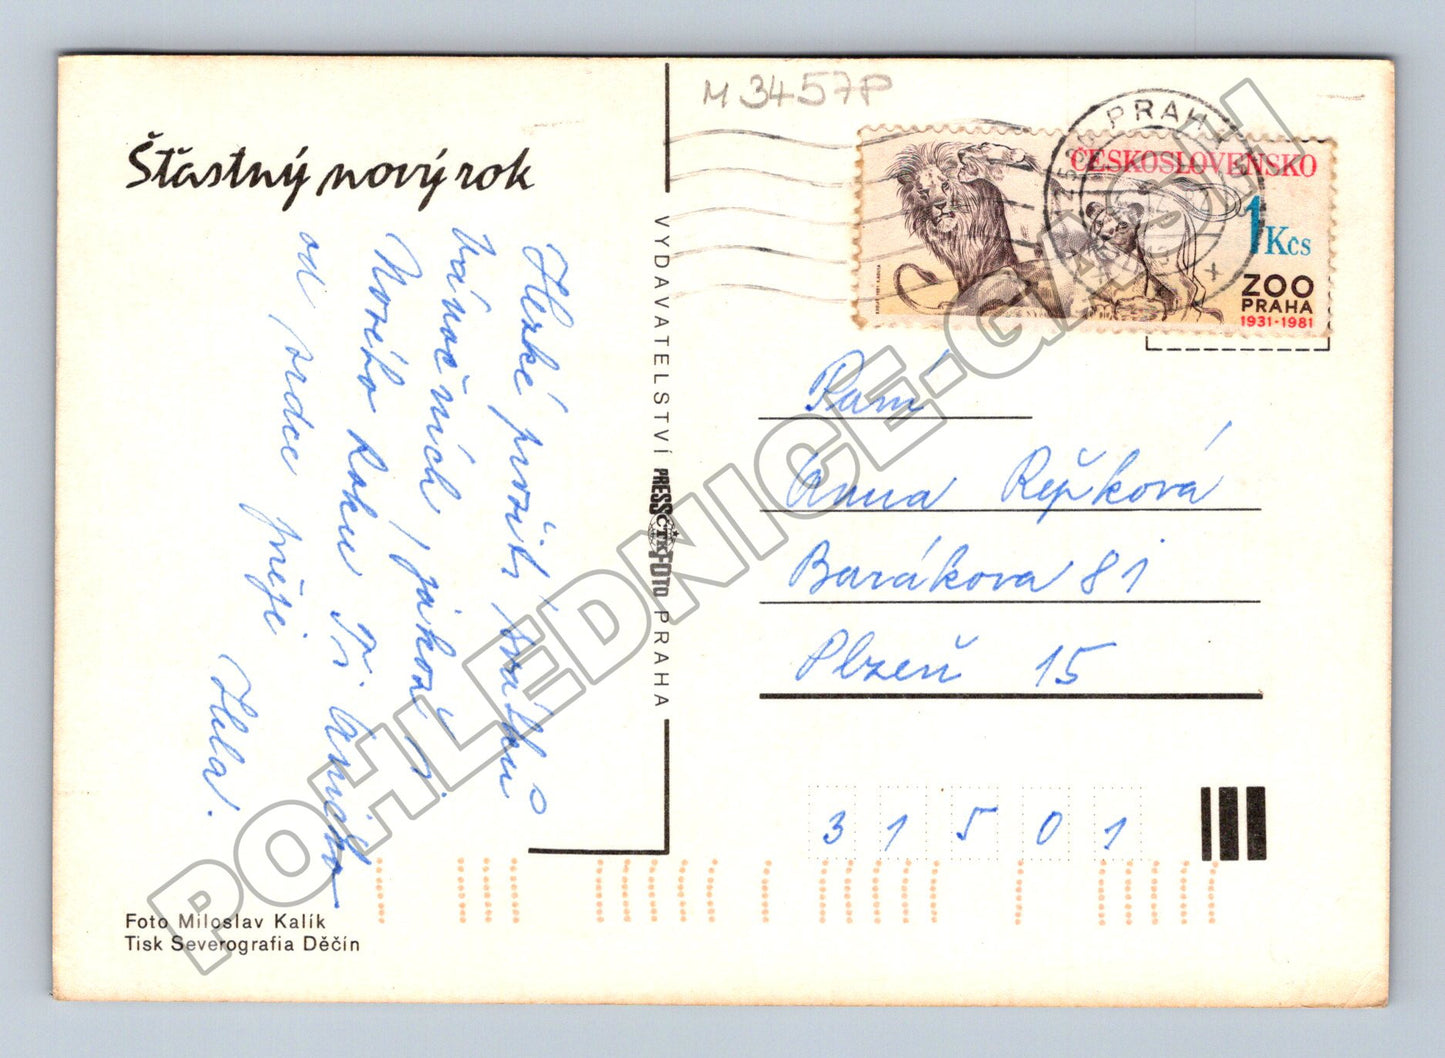 M 3457P
Šťastný nový rok
Hezké prožití svátků
vánočních, jakož i
Nového Roku Ti Aničko
od srdce přeji
Hela.
VYDAVATELSTVÍ PRESSFOTO PRAHA
ČTK
PRAHA
ČESKOSLOVENSKO
1 Kčs
ZOO
PRAHA
1931-1981
Paní
Anna Řepková
Barákova 81
Plzeň 15
31501
Foto Miloslav Kalík
Tisk Severografia Děčín
POHLEDNICE-GASH